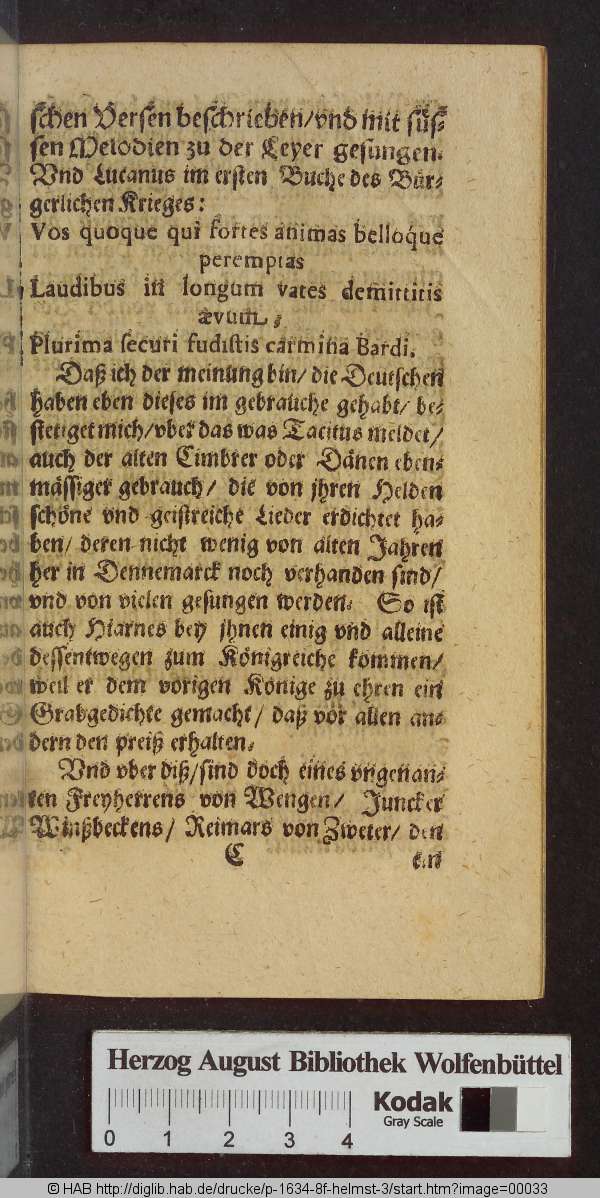 schen Versen beschrieben/vnd mit süs-
sen Melodien zu der Leyer gesungen.
Vnd Lucanus im ersten Buche des Bür-
gerlichen Krieges:
Vos quoque qui fortes animas belloque
peremptas
Laudibus in longum vates demittitis
ævum,
Plurima securi fudistis carmina Bardi.
Daß ich der meinung bin/ die Deutschen
haben eben dieses im gebrauche gehabt/ be-
stetiget mich/vber das was Tacitus meldet/
auch der alten Cimbrer oder Dänen eben-
mässiger gebrauch/ die von jhren Helden
schöne vnd geistreiche Lieder erdichtet ha-
ben/ deren nicht wenig von alten Jahren
her in Dennemarck noch verhanden sind/
vnd von vielen gesungen werden. So ist
auch Hiarnes bey jhnen einig vnd alleine
dessentwegen zum Königreiche kommen/
weil er dem vorigen Könige zu ehren ein
Grabgedichte gemacht/ daß vor allen an-
dern den preiß erhalten.
Vnd vber diß/sind doch eines vngenan-
ten Freyherrens von Wengen/ Juncker
Winßbeckens/ Reimars von Zweter/ den
C
Herzog August Bibliothek Wolfenbüttel
Kodak
Gray Scale
0 1 2 3 4
© HAB http://diglib.hab.de/drucke/p-1634-8f-helmst-3/start.htm?image=00033